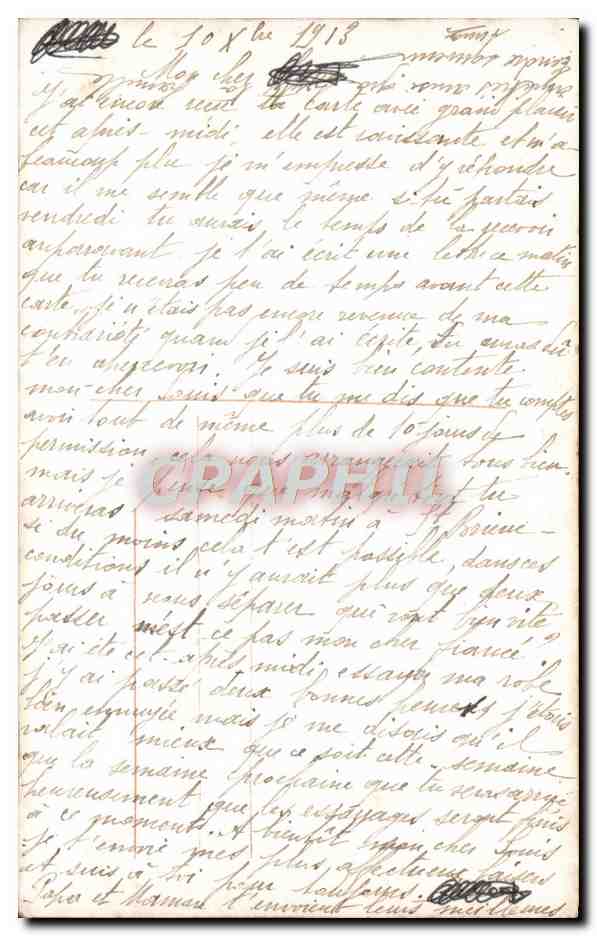 le 10 Xbre 1913
Mon cher
J'ai encore reçu ta carte avec grand plaisir
cet après-midi, elle est ravissante et m'a
beaucoup plu je m'empresse d'y répondre
car il me semble que même si tu partais
vendredi tu aurais le temps de la recevoir
auparavant je t'ai écrit une lettre ce matin
que tu recevras peu de temps avant cette
carte, je n'étais pas encore revenue de ma
contrariété quand je l'ai écrite, tu auras dû
t'en apercevoir. Je suis bien contente
mon cher Louis que tu me dis que tu comptes
avoir tout de même plus de 10 jours de
permission cela nous arrangerait tous bien.
mais je tu
arriveras samedi matin à St Brieuc
si du moins cela t'est possible, dans ces
conditions il n'y aurait plus que deux
jours à nous séparer qui vont bien vite
passer n'est ce pas mon cher fiancé?
J'ai été cet après midi essayer ma robe
j'y ai passé deux bonnes heures j'étais
bien ennuyée mais je me disais qu'il
valait mieux que ce soit cette semaine
que la semaine prochaine que tu seras arrivé
heureusement que les essayages seront finis
à ce moment. A bientôt mon cher Louis
je t'envoie mes plus affectueux baisers
et suis à toi pour toujours.
Papa et Maman t'envoient leurs meilleures
CPAPHIL